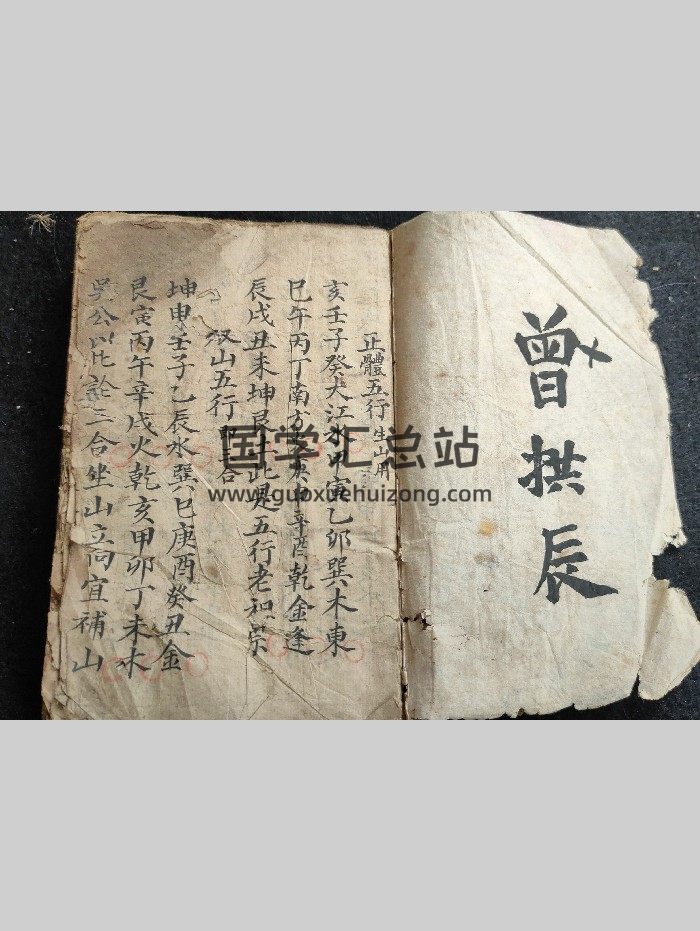 曾拱辰
正體五行 生山用
亥壬子癸大江水甲寅乙卯巽木東
巳午丙丁南方火庚申辛酉乾金逢
辰戌丑未坤艮土此是五行老祖宗
双山五行 即三合
坤申壬子乙辰水巽巳庚酉癸丑金
艮寅丙午辛戌火乾亥甲卯丁未木
吳公以此論三合坐山立向宜補山
国学汇总站
www.guoxuehuizong.com